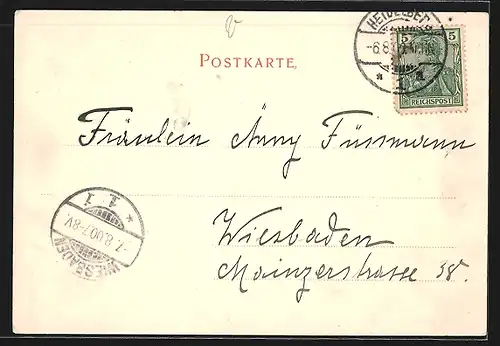 POSTKARTE.
5 5
REICHSPOST
HEIDELBERG
Fräulein Anny Füssmann
Wiesbaden
Mainzerstrasse 38.
1.1
7.8.00.7-8V.
WIESBADEN